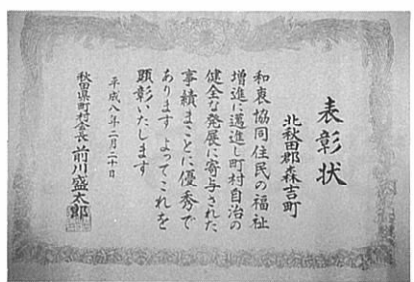 表彰状
北秋田郡森吉町
和衷協同住民の福祉
増進に邁進し町村自治の
健全な発展に寄与された
事績まことに優秀で
ありますよってこれを
顕彰いたします
平成八年二月二十日
秋田県町村会長 前川盛太郎